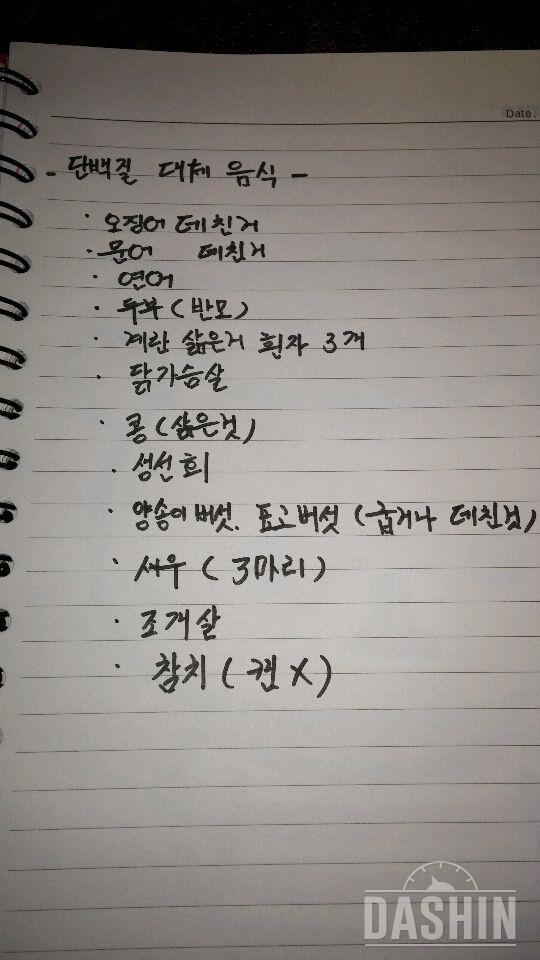 Date.
- 단백질 대체 음식 -
· 오징어 데친거
· 문어 데친거
· 연어
· 두부 (반모)
· 계란 삶은거 흰자 3개
· 닭가슴살
· 콩 (삶은것)
· 생선회
· 양송이버섯. 표고버섯 (굽거나 데친것)
· 새우 (3마리)
· 조개살
· 참치 (캔 X)
DASHIN